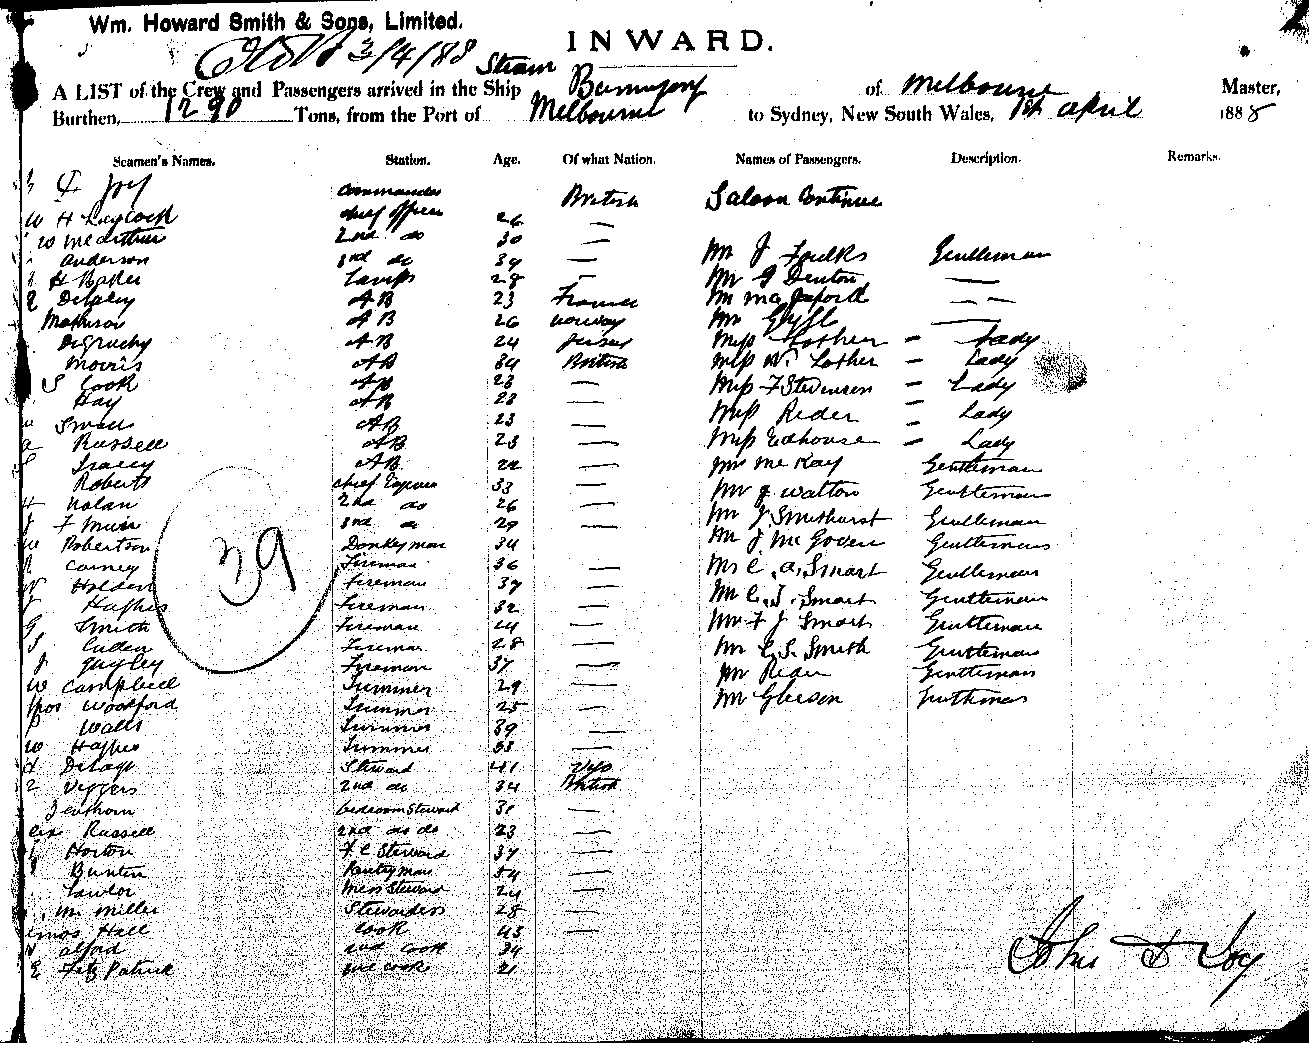 Wm. Howard Smith & Sons, Limited.
3/4/88
INWARD.
Steam
A LIST of the Crew and Passengers arrived in the Ship of Melbourne Master,
Burthen, 1290 Tons, from the Port of Melbourne to Sydney, New South Wales, 1st April 1888
Seamen's Names. Station. Age. Of what Nation. Names of Passengers. Description. Remarks.
Joy Commander British Saloon Continued
W H Laylock chief officer 26 —
W McArthur 2nd do 30 —
Anderson 3rd do 34 — Mr J Foulks Gentleman
H Baker Lamps 28 — Mr Denton —
AB 23 France Mr — —
Mathison AB 26 Norway Mr —
DeGruchy AB 24 Jersey Miss Lother — Lady
Morris AB 34 British Miss N. Lother — Lady
S Cook AB 23 — Miss F Stevenson — Lady
Hay AB 28 —
Small AB 23 — Miss Rider — Lady
Russell AB 23 — Miss Edhouse — Lady
Tracey AB 22 — Mr McKay Gentleman
Roberts chief 33 —
H Nolan 2nd do 26 — Mr J Walton Gentleman
J F Muir 3rd do 29 — Mr J Smethurst Gentleman
W Robertson Donkeyman 34 — Mr J McGovern Gentleman
39
Carney Fireman 36 — Mr C. A. Smart Gentleman
Holden Fireman 37 —
Hughes Fireman 32 — Mr C. J. Smart Gentleman
G Smith Fireman 24 — Mr F J Smart Gentleman
S Fireman 28 — Mr C. S. Smith Gentleman
J Quigley Fireman 37 — Mr Rider Gentleman
W Campbell Trimmer 29 —
Thos Woodford Trimmer 25 — Mr Gleeson Gentleman
P Walls Trimmer 39 —
W Hughes Trimmer 33 —
Steward 41
Viggers 2nd do 34 British
bedroom Steward 31 —
Alex Russell 2nd do do 23 —
Horton F C Steward 37 —
Bunten Pantryman 34 —
Lawlor Mess Steward 24 —
M. Miller Stewardess 28 —
Amos Hall Cook 43 —
Alford 2nd cook 34 —
E Fitz Patrick cook 21 —
John Joy